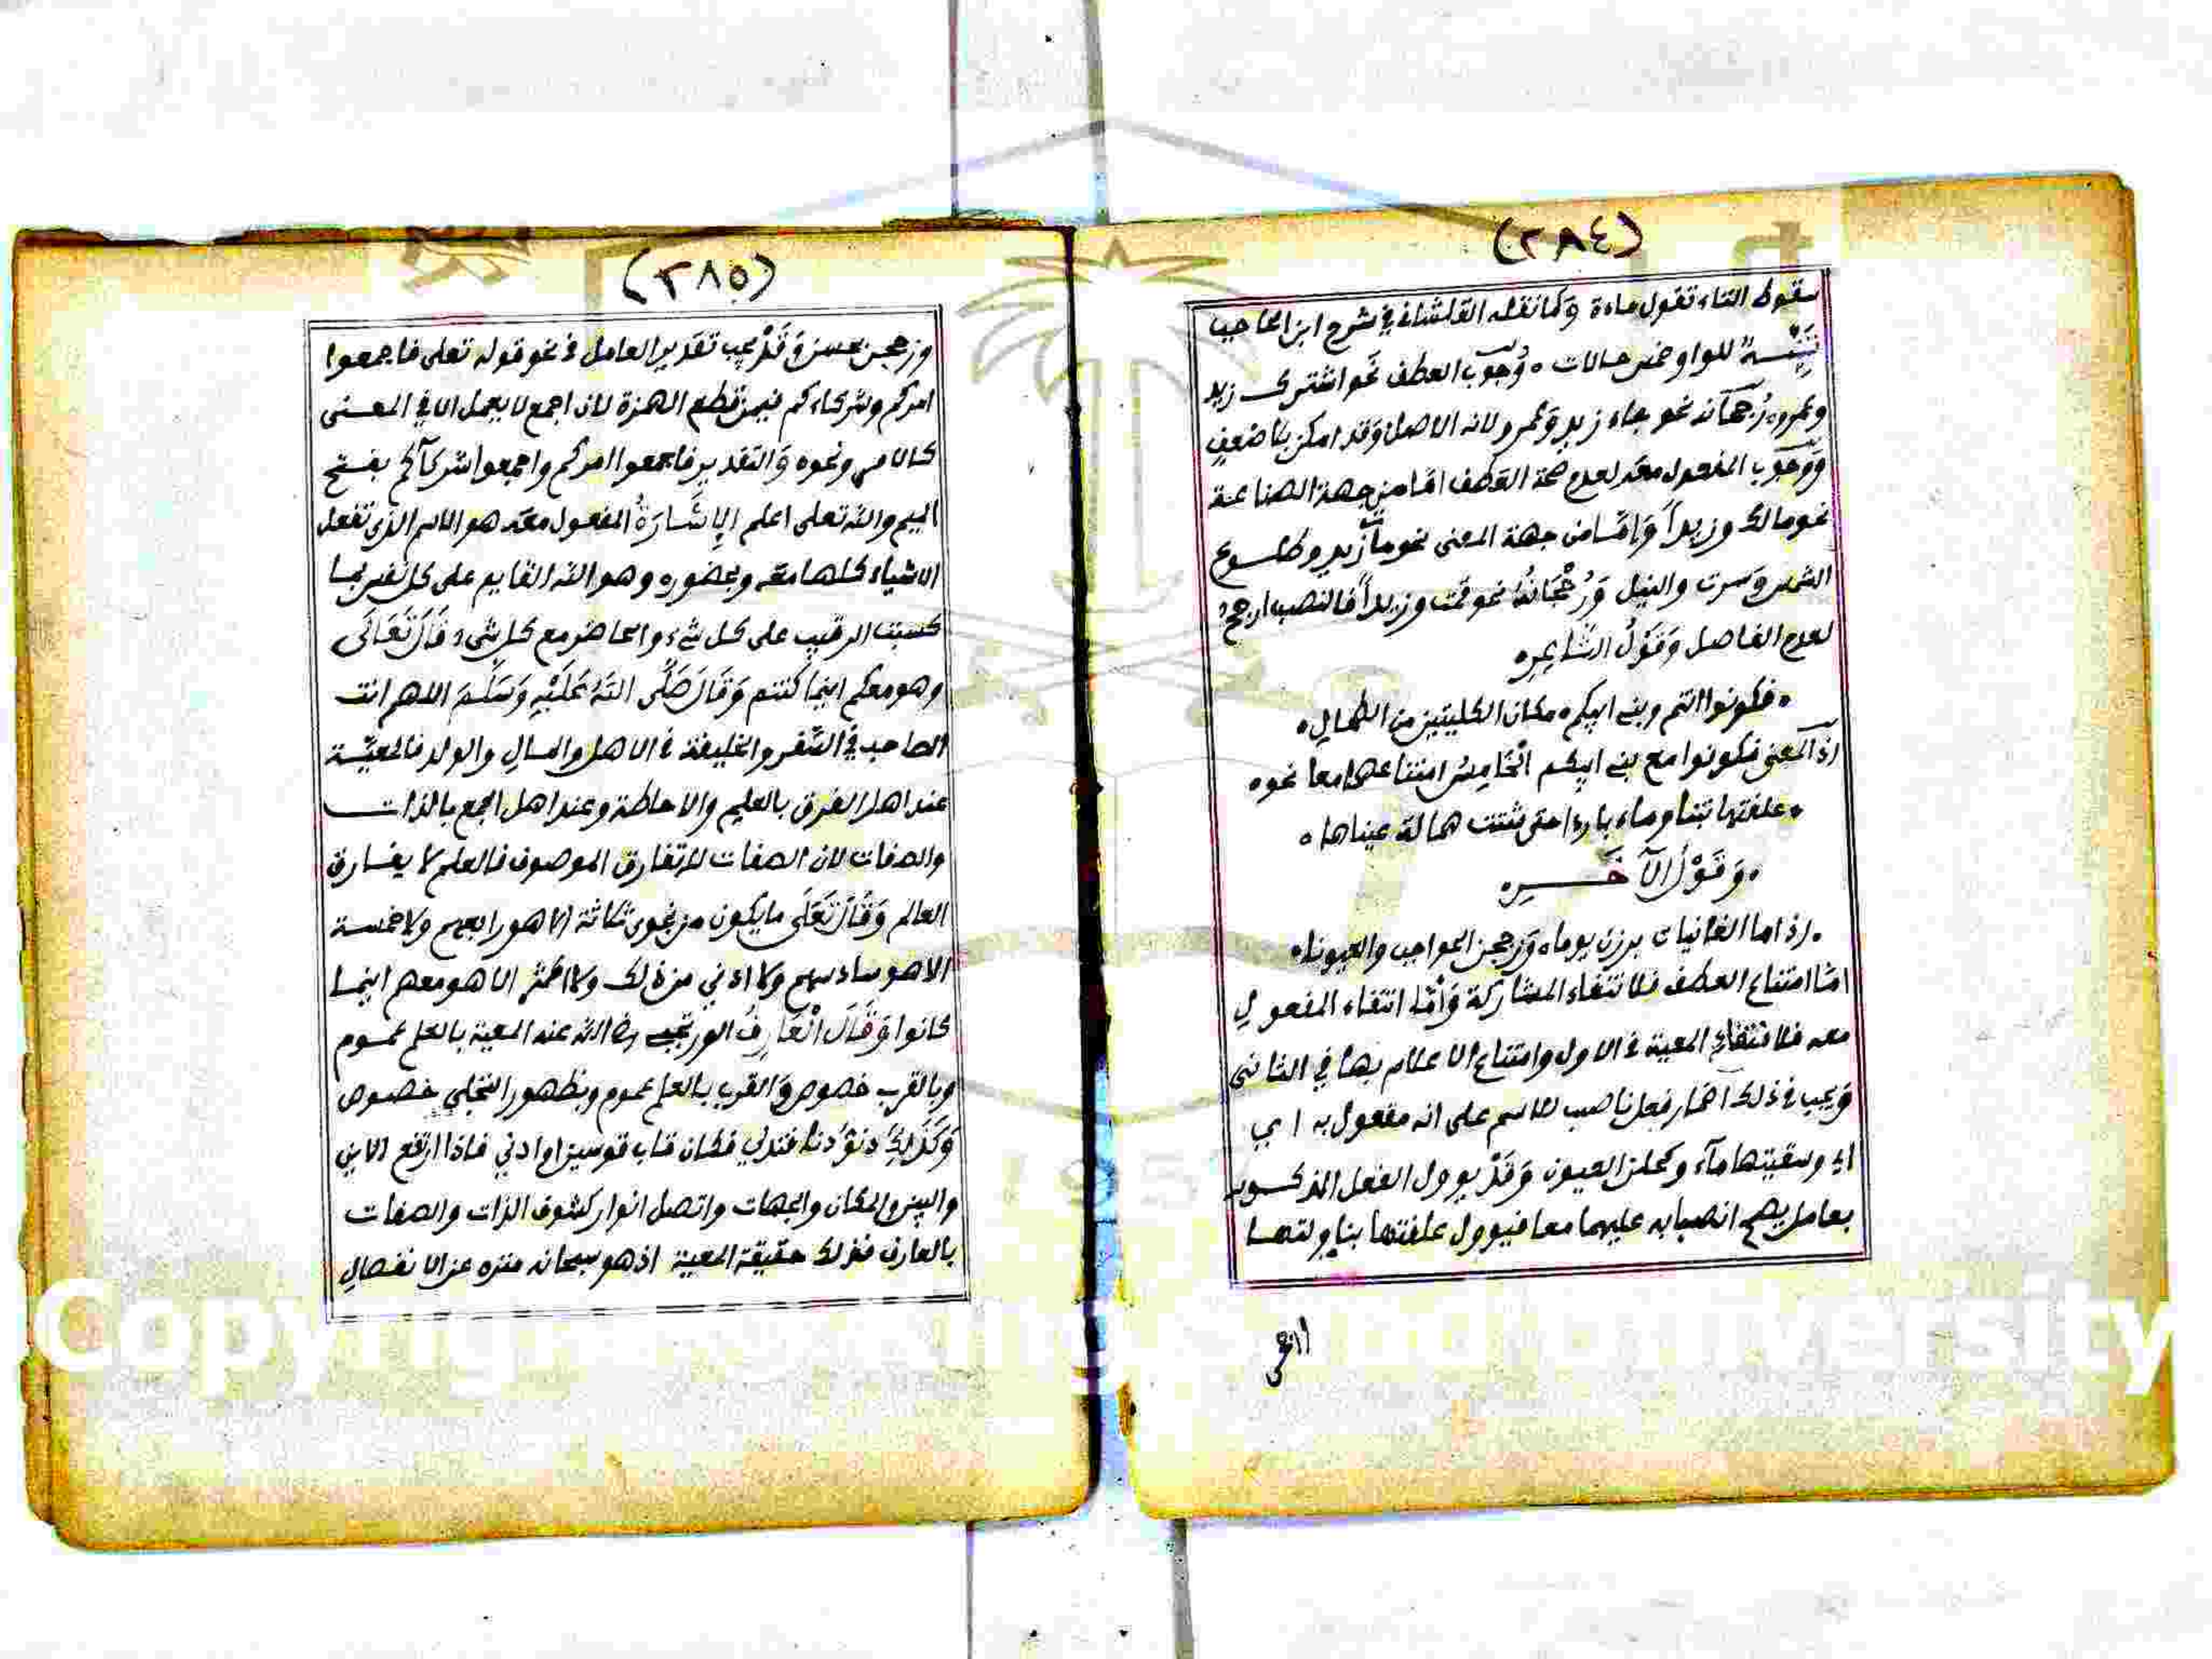 (٢٨٤)
سقوط التاء تقول ماءة وكما نقله القلشاني في شرح ابن الحاجب
تنبيه للواو خمس حالات ٥ وجوب العطف نحو اشترك زيد
وعمرو ورجحانه نحو جاء زيد وعمرو لانه الاصل وقد امكن بلا ضعف
ووجوب المفعول معه لعدم صحة العطف اما من جهة الصناعة
نحو مالك وزيداً واما من جهة المعنى نحو مات زيد وطلوع
الشمس وسرت والنيل وَرُجْحَانُهُ نحو قمت وزيداً فالنصب ارجح
لعدم الفاصل وَقَوْلُ الشَّاعِرِ
فكونوا انتم وبني ابيكم ٥ مكان الكليتين من الطحالِ ٥
اذ المعنى فكونوا مع بني ابيكم الْخَامِسُ امتناعهما معا نحو ٥
علفتها تبنا وماء باردا حتى شتت همالة عيناها ٥
وَقَوْلُ الآخَـــرِ
اذا ما الغانيات برزن يوما ٥ وزججن الحواجب والعيونا ٥
امّا امتناع العطف فلانتفاء المشاركة وَأَمَّا انتفاء المفعول
معه فلانتفاء المعية في الاول وامتناع الاعلام بها في الثاني
ويجب في ذلك اضمار فعل ناصب للاسم على انه مفعول به اي
اي وسقيتها مآء وكحلن العيون وَقَدْ يوول الفعل المذكور
بعامل يصح انصبابه عليهما معا فيوول علفتها بناولتها
وزججن بحسن وَقَدْ يجب تقدير العامل في نحو قوله تعلى فاجمعوا
(٢٨٥)
امركم وشركاءكم فيمن قطع الهمزة لان اجمع لا يعمل الا في المعنى
كالامر ونحوه وَالتقدير فاجمعوا امركم واجمعوا شركآكم بفتح
الميم والله تعلى اعلم الإِشَارَةُ المفعول معه هو الاسم الذي تفعل
الاشياء كلها معه وبحضوره وهو الله القايم على كل نفس بما
كسبت الرقيب على كل شيء والحاضر مع كل شيء قَالَ تَعَالَى
وهو معكم اينما كنتم وَقَالَ صَلَّى اللهُ عَلَيْهِ وَسَلَّمَ اللهم انت
الصاحب في السَّفر والخليفة في الاهل والمالِ والولد فالمعيَّة
عند اهل الفرق بالعلم والاحاطة وعند اهل الجمع بالذات
والصفات لان الصفات لا تفارق الموصوف فالعلم لا يفارق
العالم وَقَالَ تَعَلَى ما يكون من نجوى ثلاثة الا هو رابعهم ولا خمسة
الا هو سادسهم ولا ادني من ذلك ولا اكثر الا هو معهم اينما
كانوا وَقَالَ الْعَارِفُ الورتجبي رضي الله عنه المعية بالعلم عموم
وبالقرب خصوص وَالقرب بالعلم عموم وبظهور التجلي خصوص
وَكَذَلِكَ دنوُّ دنا فتدلي فكان قاب قوسين او ادني فاذا ارتفع الاين
والبين والمكان والجهات واتصل انوار كشوف الذات والصفات
بالعارف فذلك حقيقة المعية اذ هو سبحانه منزه عن الانفصالِ
Copyright © King Saud University